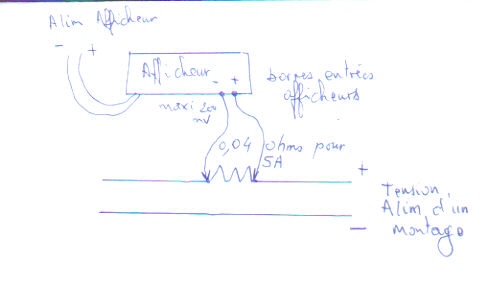 Alim Afficheur
- +
Afficheur
- +
bornes entrées
afficheurs
maxi 200
mV
0,04 ohms pour
5A
+
Tension
Alim d'un
montage
-